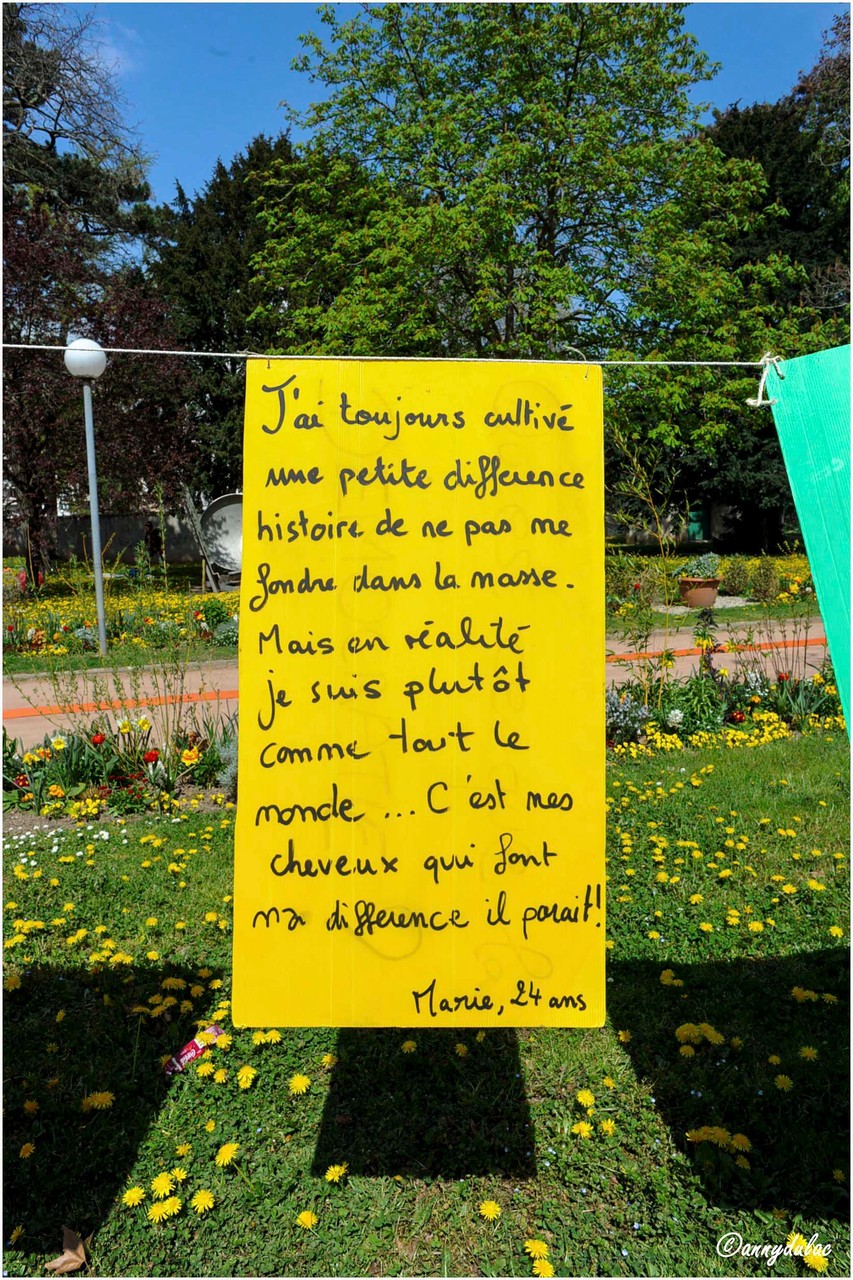 J'ai toujours cultivé
une petite différence
histoire de ne pas me
fondre dans la masse.
Mais en réalité
je suis plutôt
comme tout le
monde ... C'est mes
cheveux qui font
ma différence il parait!
Marie, 24 ans
©annydubac